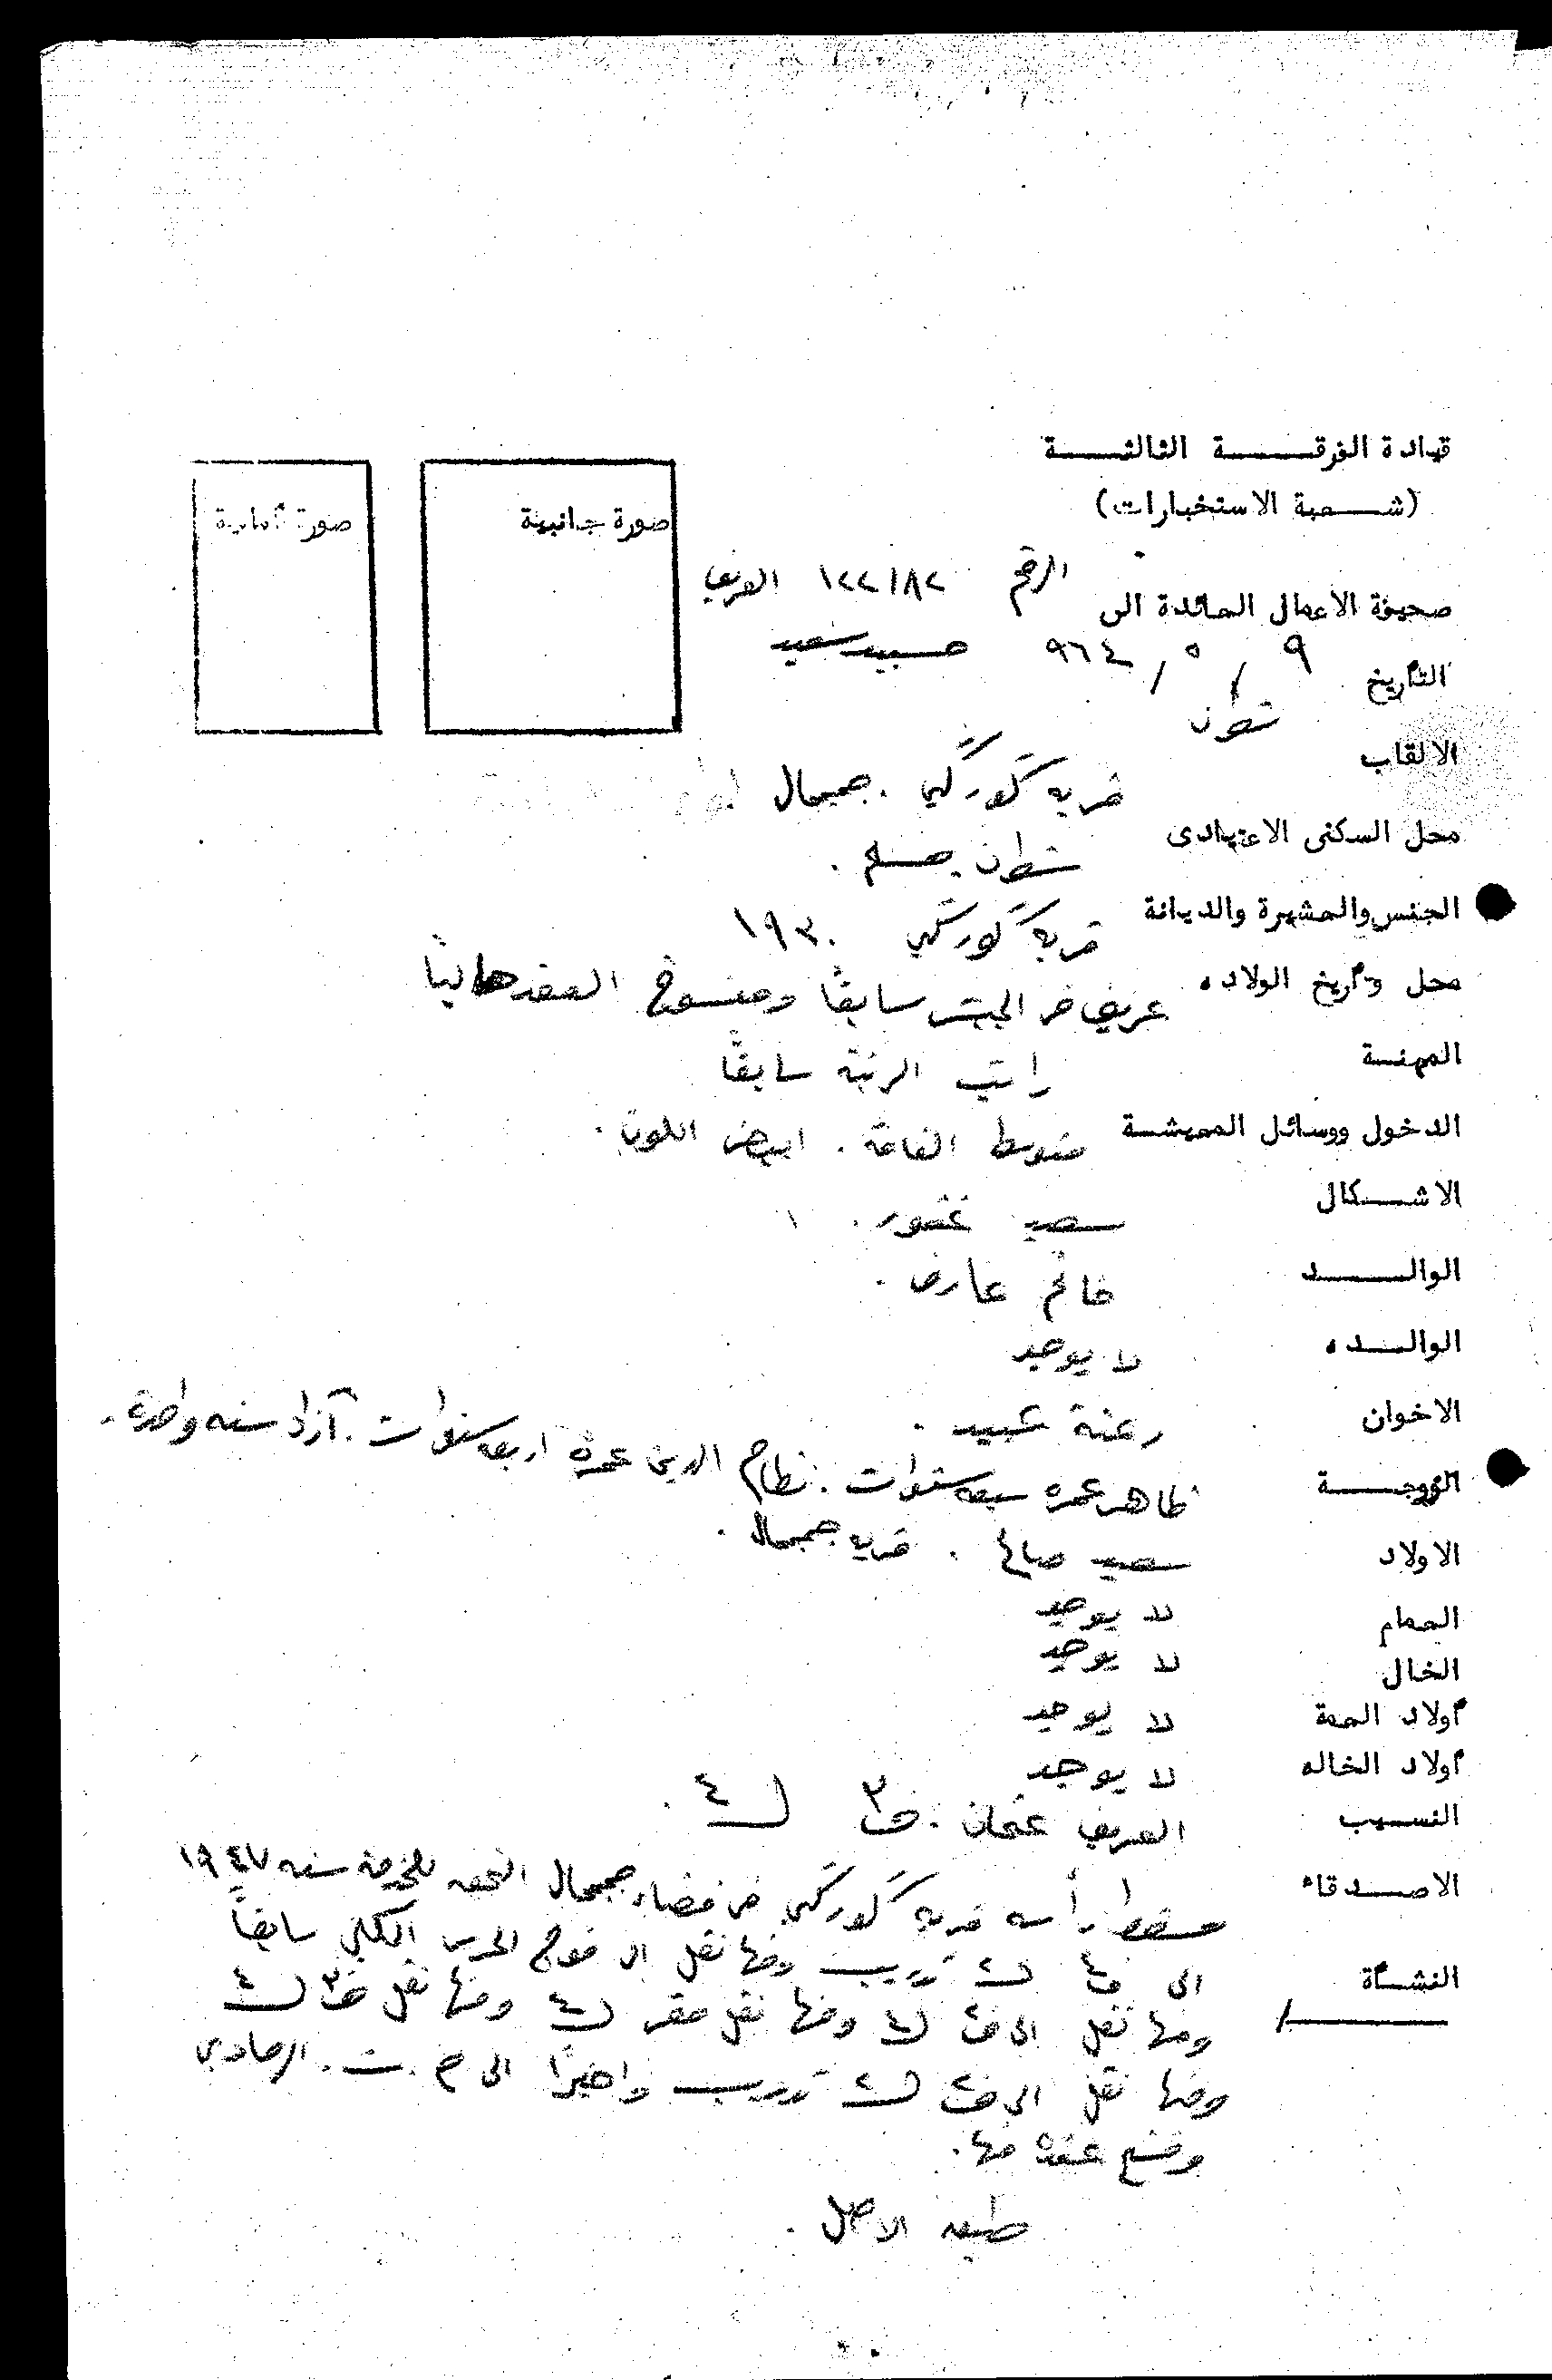 قيادة الفرقة الثالثة
(شعبة الاستخبارات)
صورة جانبية
صورة أمامية
صحيفة الاعمال العائدة الى الرقم ١٢٢١٨٢ العريف
سعيد
التأريخ ٩ / ٥ / ٩٦٤
الالقاب
محل السكنى الاعتيادى قرية گورگي . جمجمال
الجنس والعشيرة والديانة
محل وتأريخ الولاده قرية گورگي ١٩٣٠
المهنة عريف في الجيش سابقاً ومفسوخ العقد حالياً
الدخول ووسائل المعيشة راتب الرتبة سابقاً
الاشكال متوسط القامة . ابيض اللون .
الوالد سعيد غفور .
الوالده خانم عارف .
الاخوان لا يوجد
الزوجة رعنة .
الاولاد ظاهر عمره سبعه سنوات . نظام الدين عمره اربعه سنوات . آزاد سنه واحدة .
العمام سعيد صالح . قريه جمجمال .
الخال لا يوجد
أولاد العمة لا يوجد
أولاد الخاله لا يوجد
النسيب لا يوجد
الاصدقاء العريف عثمان . ف٣ ل ٤ .
النشأة
مسقط رأسه قرية گورگي من قضاء جمجمال التحق للخدمة سنه ١٩٤٧
الى ف٤ ل تدريب ومنها نقل الى فوج الحرس الملكي سابقاً
ومنها نقل الى ف ل٤ ومنها نقل مقر ل٤ ومنها نقل ف٣ ل٤
ومنها نقل الى ف ل تدريب واخيراً الى م . ت . الرمادي
وفسخ عقده منها .
طبعه الاصل .